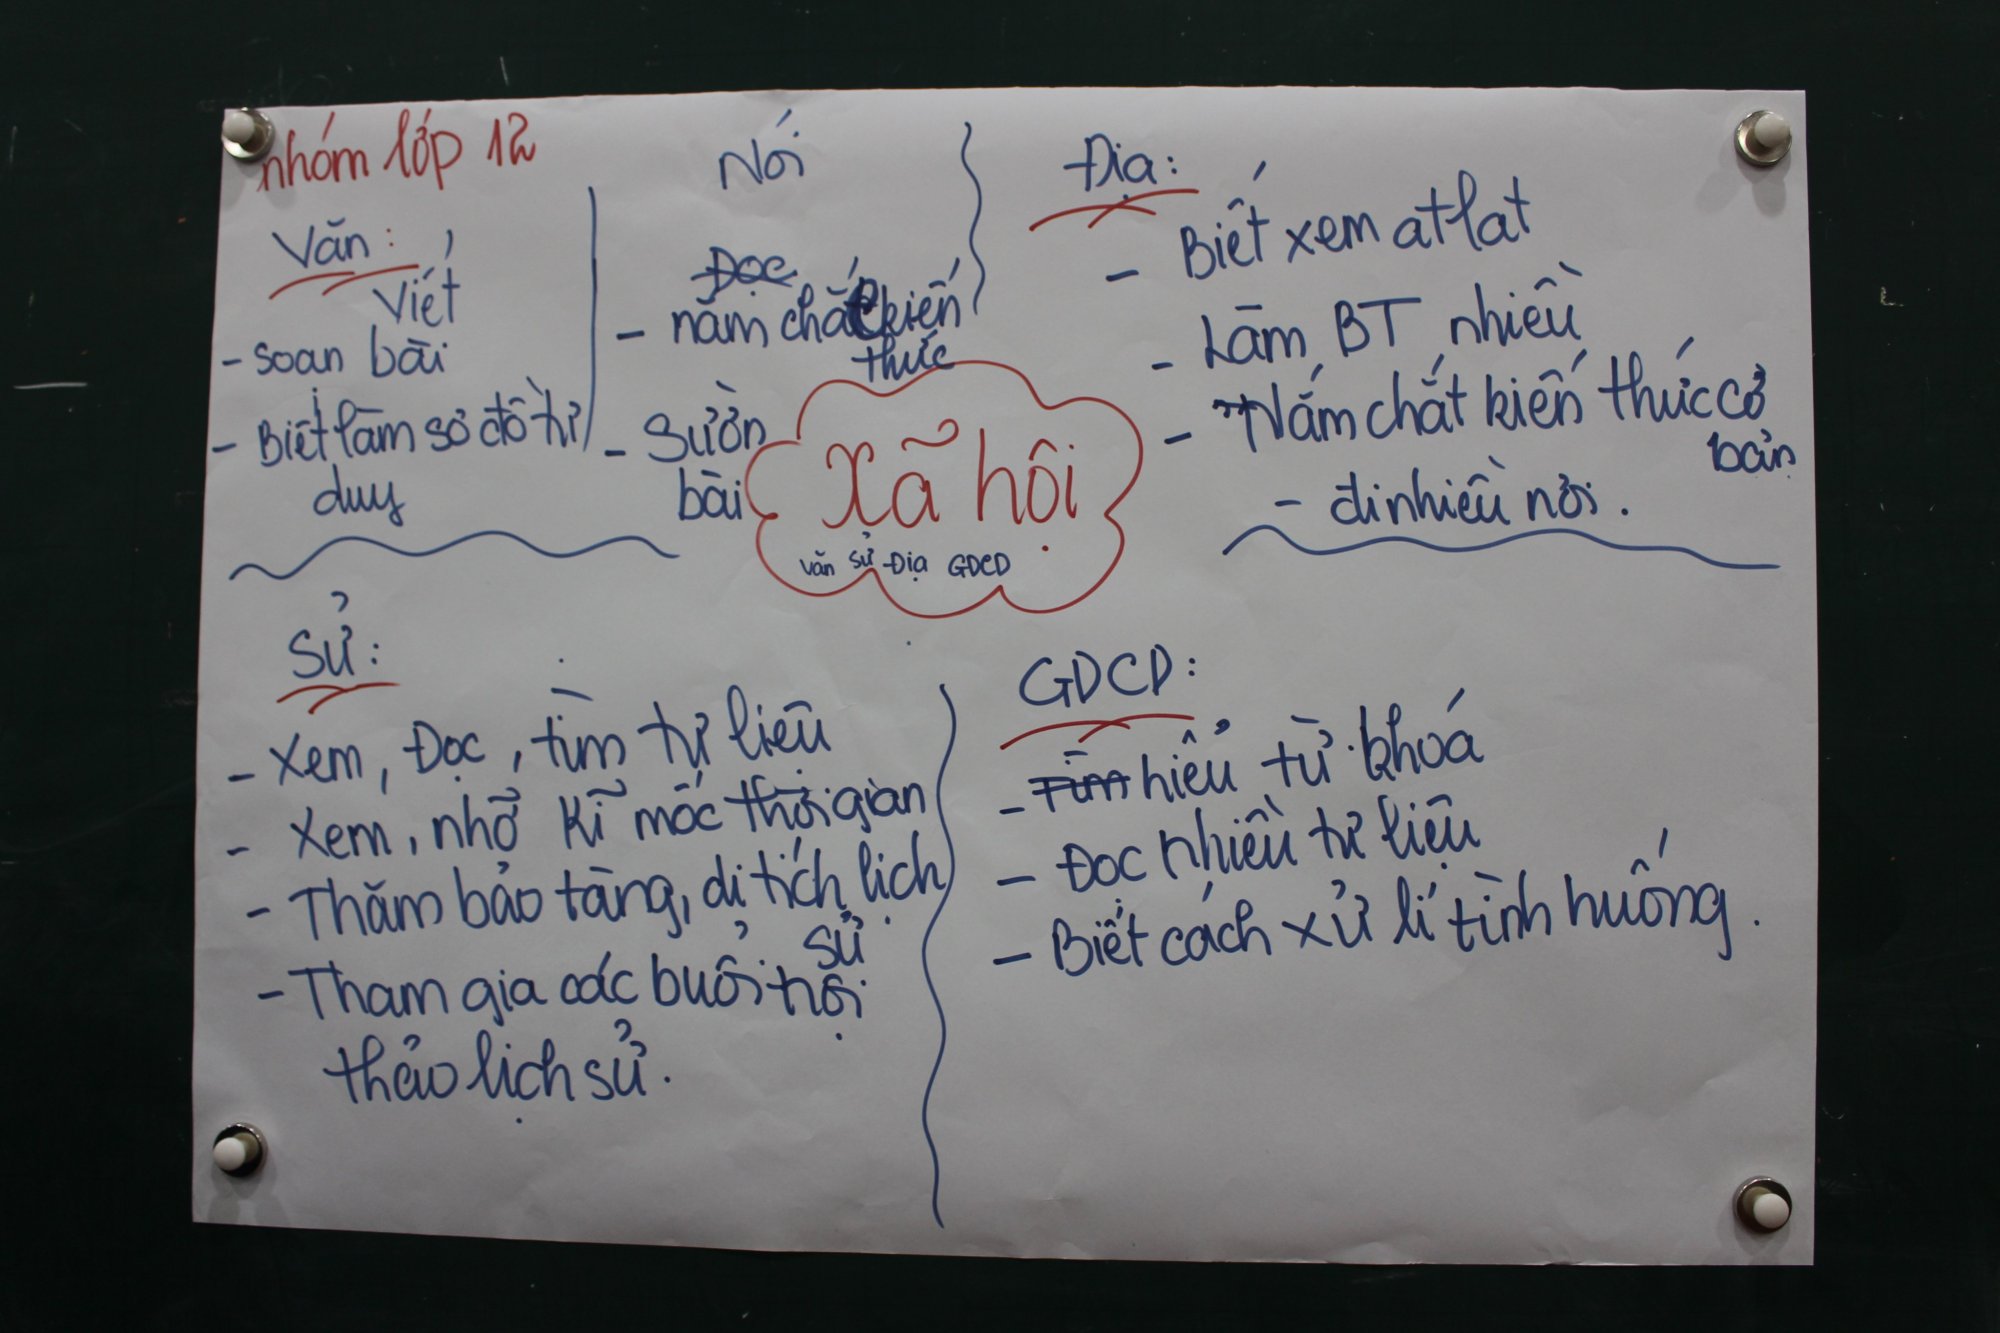 nhóm lớp 12
Văn:
Viết
- soạn bài
- Biết làm sơ đồ tư
duy
Nói
Đọc
- nắm chắc kiến
thức
- Sườn
bài
Xã hội
Văn Sử Địa GDCD
Địa:
- Biết xem atlat
- Làm BT nhiều
- Nắm chắt kiến thức cơ
bản
- đi nhiều nơi.
Sử:
- Xem, Đọc, tìm tư liệu
- Xem, nhớ kĩ mốc thời gian
- Thăm bảo tàng, di tích lịch
sử
- Tham gia các buổi hội
thảo lịch sử.
GDCD:
- Tìm hiểu từ khoá
- Đọc nhiều tư liệu
- Biết cách xử lí tình huống.